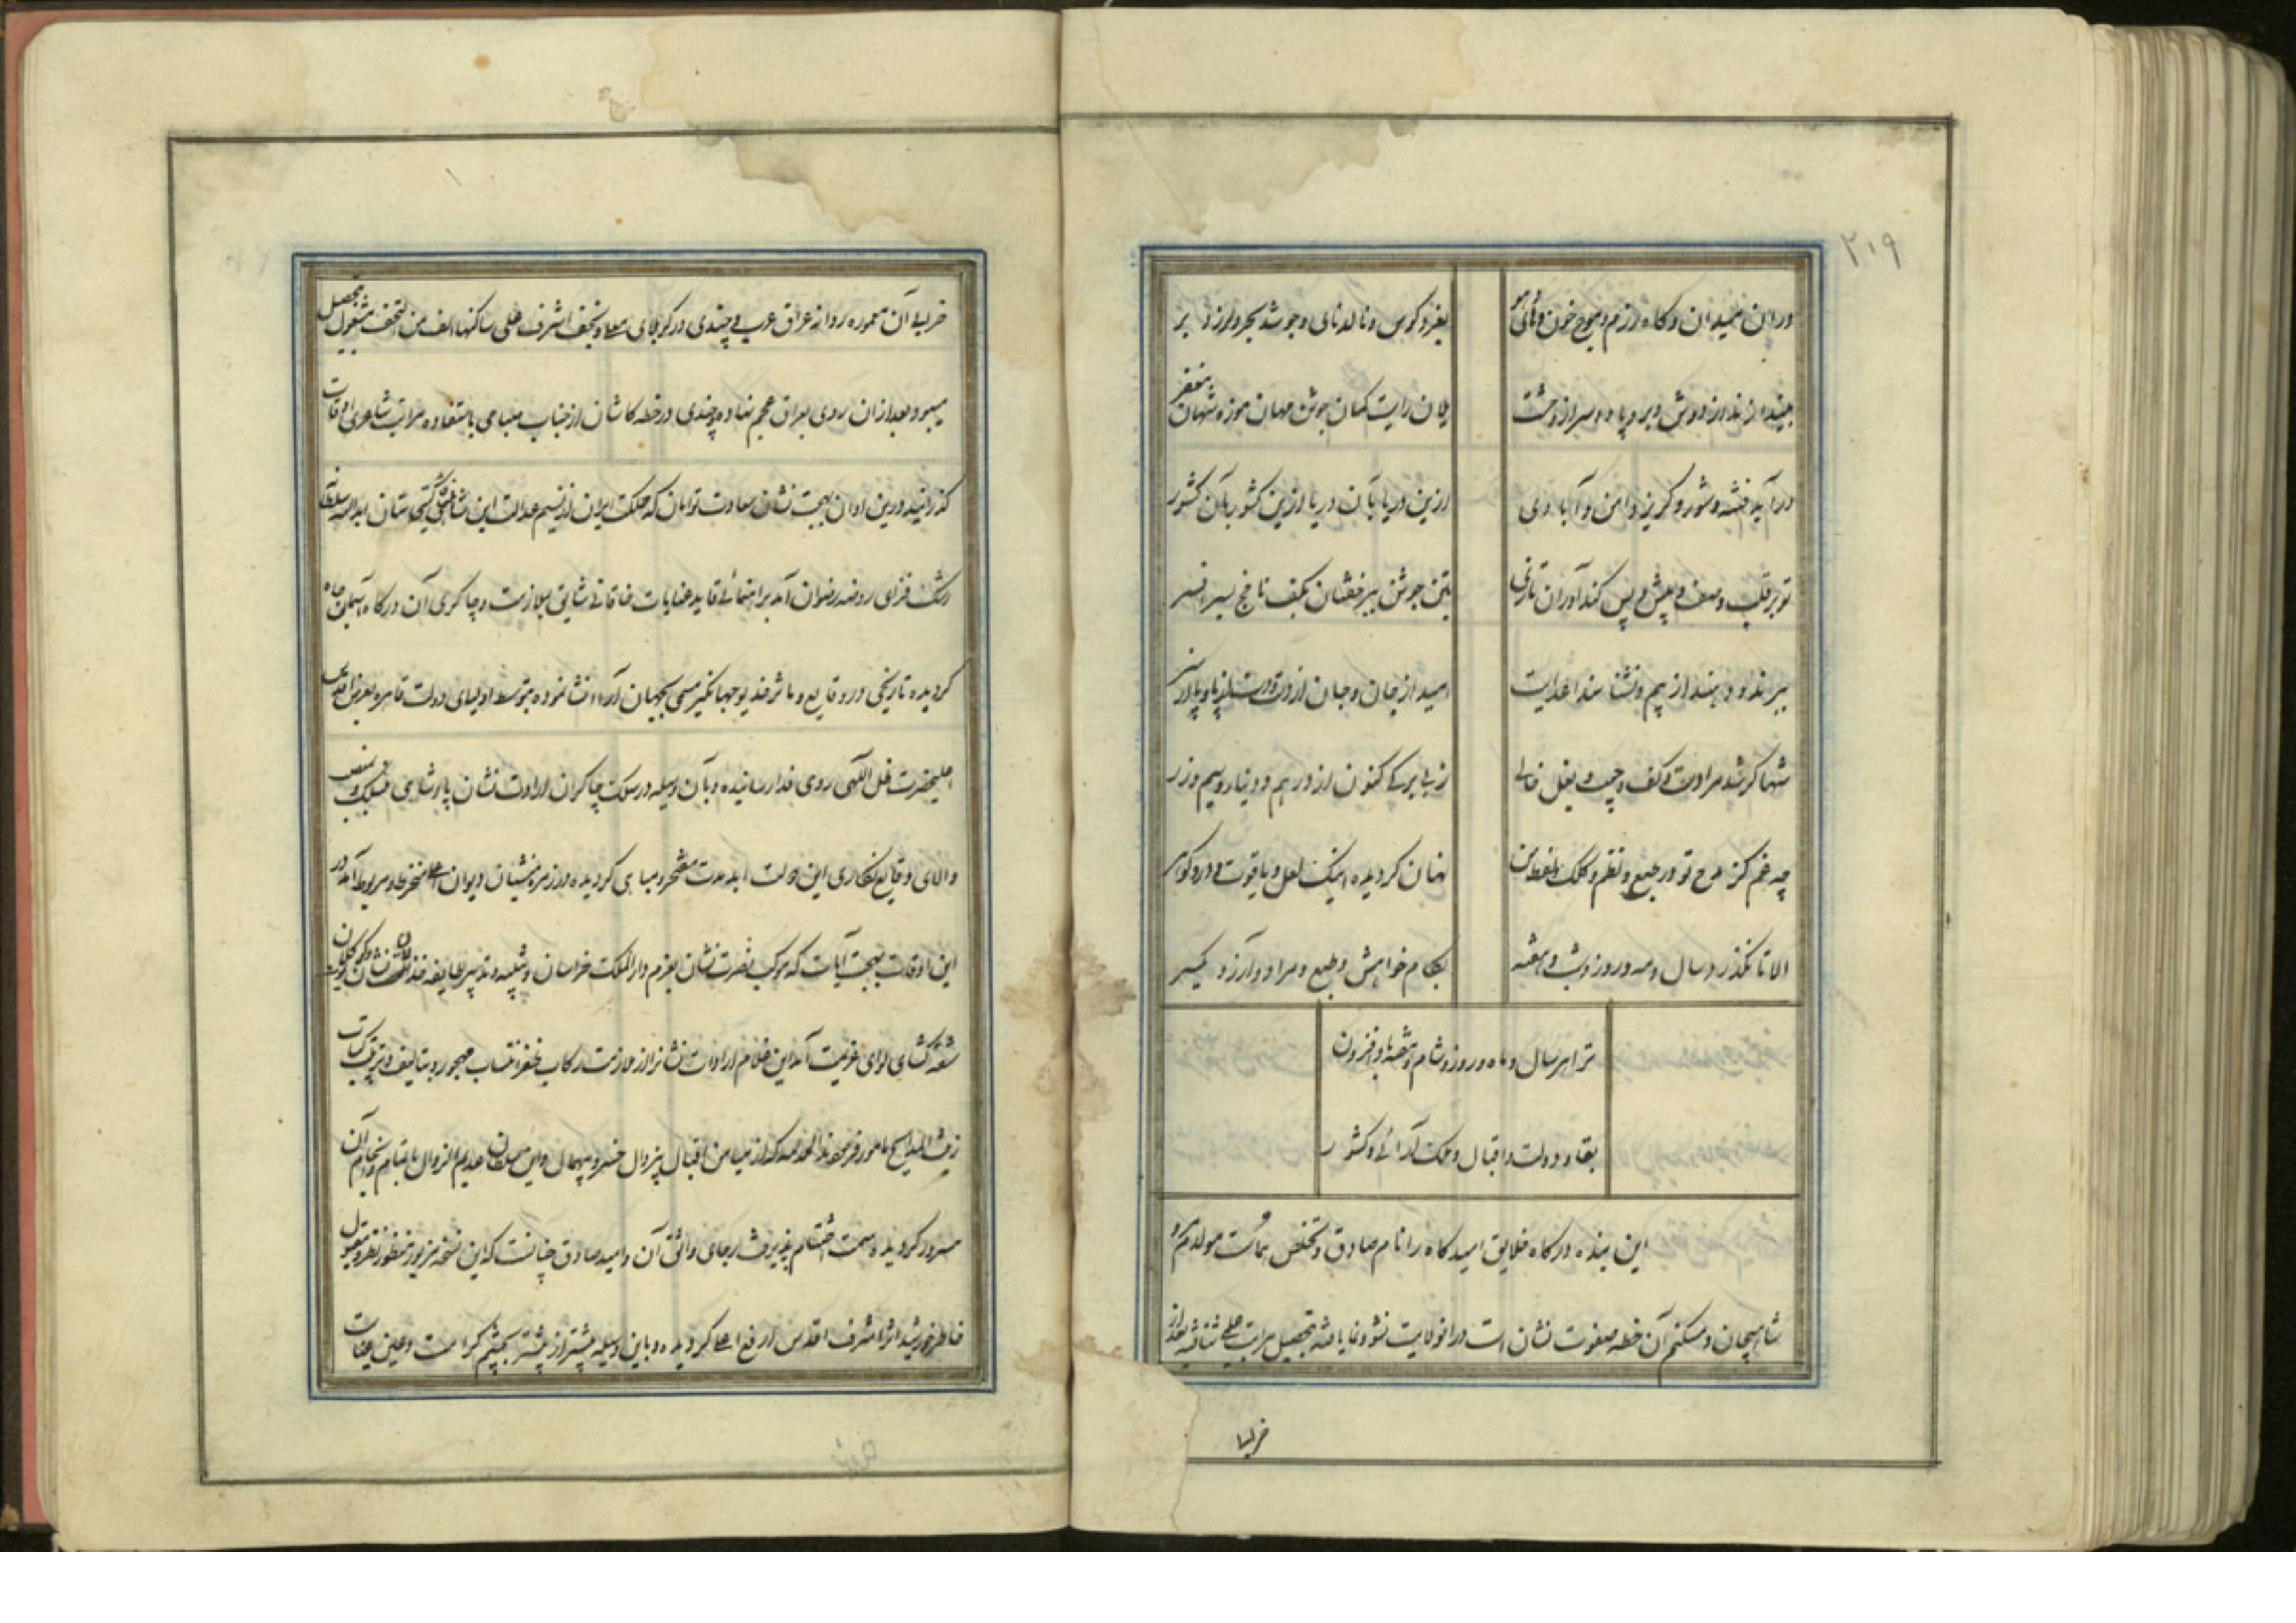 ۲۱۹
در آن میدان و گاه رزم و موج خون و های هو
بغرد کوس و نالد نای و جوشد بحر و لرزد بر
یلان رایت کمان جوشن مهان موزه شهان مغفر
درآید فتنه و شور و گریزد امن و آبادی
ازین دریا بآن دریا ازین کشور بآن کشور
تو بر قلب و صف و پیش و پس کندآوران تازی
بتن جوشن ببر خفتان بکف ناچخ بسر افسر
ببرند و دهند از بیم و نشناسند اعدایت
امید از جان و جان از تن
شها گر شد مرا دست و کف و جیب و بغل خالی
ز بی برگی کنون از درهم و دینار و سیم و زر
چه غم کز مدح تو در طبع و نظم و کلک و لفظ من
نهان گردیده اینک لعل و یاقوت و در و گوهر
الا تا بگذرد سال و مه و روز و شب و هفته
بکام خواهش و طبع و مراد و آرزو یکسر
ترا هر سال و ماه و روز و شام و هفته باد افزون
بقا و دولت و اقبال و ملک آرائی و کشور
این بنده درگاه خلایق امیدگاه را نام صادق و تخلص هماست مولدم مرو
شاهیجان و مسکنم آن خطه صفوت نشان است در آنولایت نشو و نما یافته بتحصیل مراتب علمی شتافته بعد از
خرابی
خرابی آن معموره روانه عراق عرب و چندی در کربلای معلا و نجف اشرف علی ساکنها الف من التحف مشغول تحصیل
میبود و بعد از ان روی بعراق عجم نهاده چندی در خطه کاشان از جناب صباحی باستفاده مراتب شاعری اوقات
گذرانید درین اوان بهجت نشان سعادت توامان که مملکت ایران از نسیم عدالت این شاهنشاه گیتی ستان
رشک فزای روضه رضوان آمد براهنمائی قاید عنایات خاقانی شایق ملازمت و چاکری آن درگاه آسمان جاه
گردیده تاریخی در وقایع و ماثر خدیو جهانگیر مسمی بجهان آرا انشا نموده بتوسط اولیای دولت قاهره بعرض اقدس
اعلیحضرت ظل اللهی روی فدا رسانیده و بآن وسیله در سلک چاکران ارادت نشان پادشاهی منسلک و بمنصب
والای وقایع نگاری این دولت ابد مدت مفتخر و مباهی گردیده و در زمره منشیان دیوان اعلی منخرط و مربوط آمد در
این اوقات بهجت آیات که موکب نصرت نشان بعزم دارالملک خراسان و تنبیه و تدبیر طایفه
شقه گشای لوای عزیمت آمد این غلام ارادت نشان از ملازمت رکاب ظفر انتساب مهجور و بتالیف و ترتیب کتاب
زینت المدایح مامور فرمودند الحمد لله که از میامن اقبال بیزوال خسرو بیهمال و این سلطان عدیم الزوال باتمام و انجام آن
مسرور گردیده سمت اختتام پذیرفت رجای واثق آن و امید صادق چنانست که این نسخه مزبور منظور نظر و مقبول
خاطر خورشید اثر اشرف اقدس ارفع اعلی گردیده و باین وسیله بیشتر از پیشتر بچشم کرامت و عین عنایت